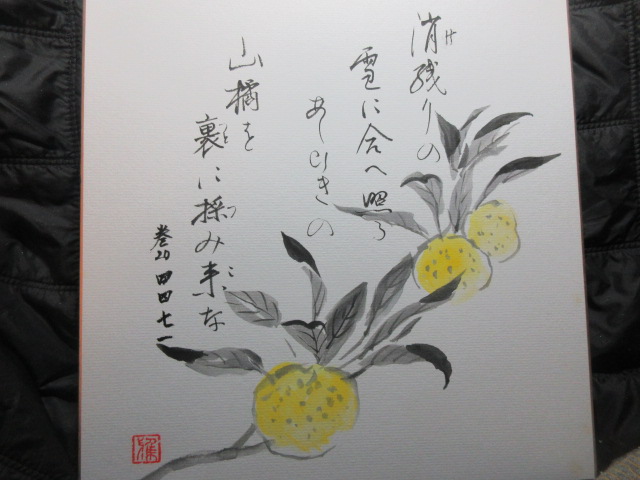 消残りの
雪に合へ照る
あしひきの
山橘を
裏に採み来な
巻20 四四七一
け
と
つ
こ